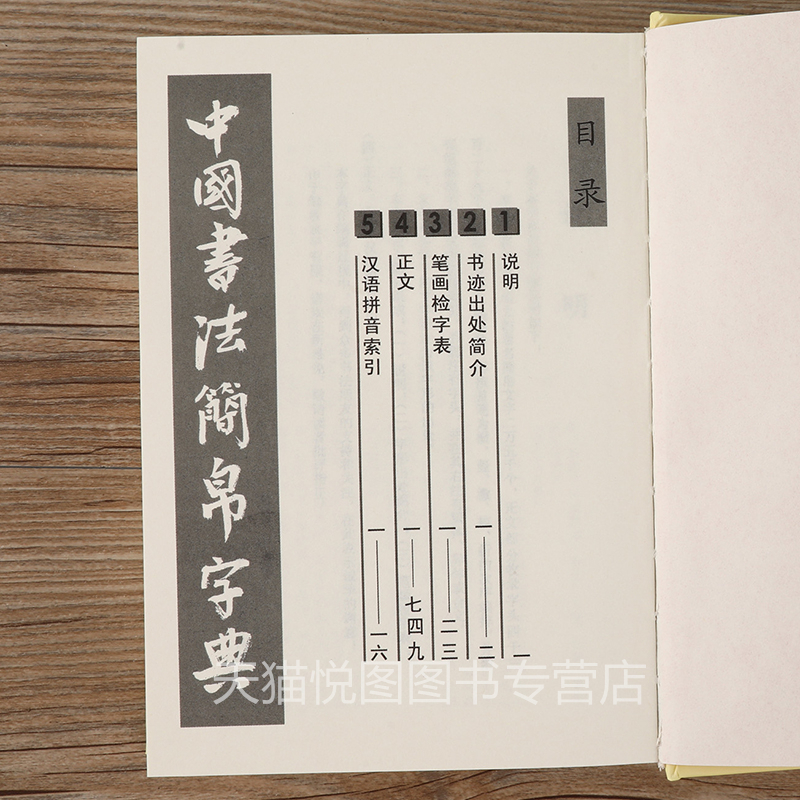 目录
1 说明 一
2 书迹出处简介 一——二
3 笔画检字表 一——二三
4 正文 一——七四九
5 汉语拼音索引 一——一六
中國書法簡帛字典
天猫悦图图书专营店